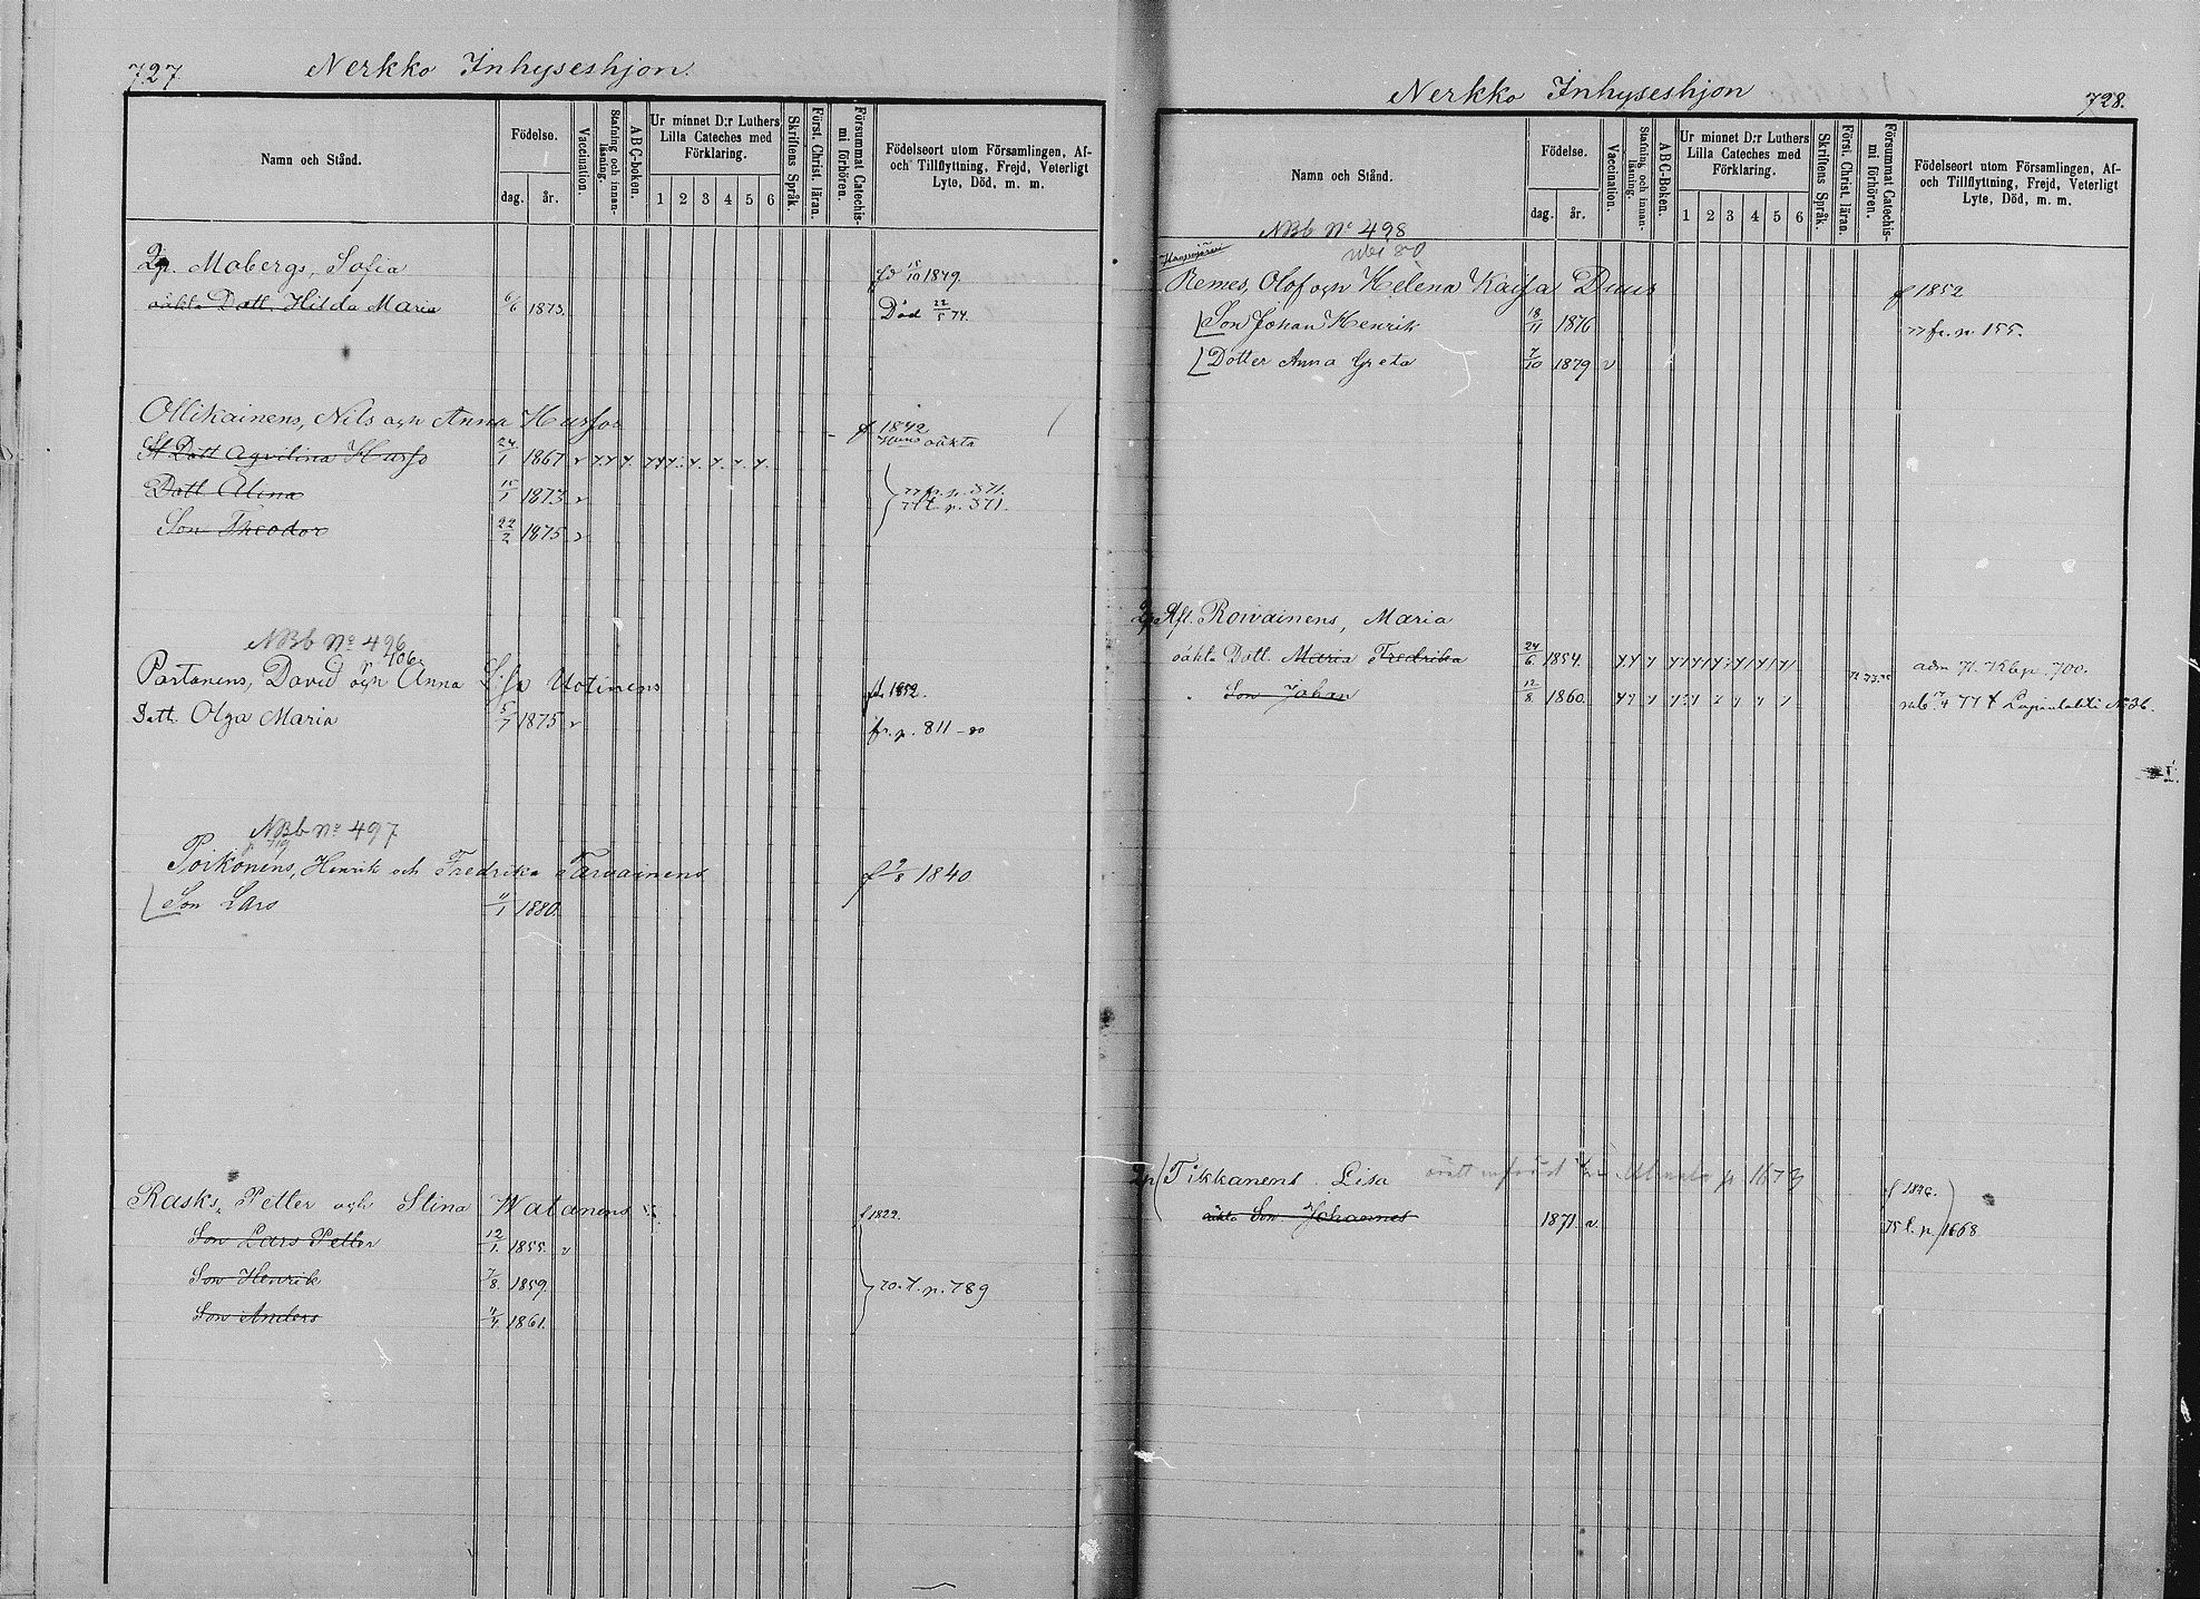 727.
Nerkko Inhyseshjon.
Namn och Stånd.
Födelse.
dag.
år.
Vaccination.
Stafning och innan-läsning.
ABC-boken.
Ur minnet D:r Luthers Lilla Cateches med Förklaring.
1 2 3 4 5 6
Skriftens Språk.
Först. Christ. läran.
Försummat Catechis-mi förhören.
Födelseort utom Församlingen, Af- och Tillflyttning, Frejd, Veterligt Lyte, Död, m. m.
Qp. Mobergs, Sofia fd 15/10 1849.
oäkta Dott. Hilda Maria 6/6 1873. Död 22/5 74.
Ollikainens, Nils och Anna Hurskos f 1842
Dott Agvilina Hursko 24/1 1867 v oäkta
Dott. Alina 15/1 1873 v 77 fr. p. 371.
Son Theodor 22/2 1875 v 77 t. p. 371.
NBb No 496
406
Partanens, David och Anna Lisa Uotinens fd. 1852.
Dott. Olga Maria 5/7 1875 v fr. p. 811-80
NBb No 497
Poikonens, Henrik och Fredrika Tarvainens f 9/8 1840
Son Lars 11/1 1880.
Rasks, Petter och Stina Watanens f 1822.
Son Lars Petter 12/1. 1855. v
Son Henrik 7/8. 1859. 70. t. p. 789
Son Anders 11/4. 1861.
Nerkko Inhyseshjon
728.
Namn och Stånd.
Födelse.
dag.
år.
Vaccination.
Stafning och innan-läsning.
ABC-Boken.
Ur minnet D:r Luthers Lilla Cateches med Förklaring.
1 2 3 4 5 6
Skriftens Språk.
Först. Christ. läran.
Försummat Catechis-mi förhören.
Födelseort utom Församlingen, Af- och Tillflyttning, Frejd, Veterligt Lyte, Död, m. m.
NBb No 498
Remes, Olof och Helena Kaisa Duus f 1852
Son Johan Henrik 18/11 1876 77 fr. p. 155.
Dotter Anna Greta 7/10 1879 v
Qp Afl. Rowainens, Maria
oäkta Dott. Maria Fredrika 24/6. 1854. adm 71. p. 700.
Son Johan 12/8. 1860. 77 t Lapinlahti No 36.
Qp Tikkanens Lisa p 1673 f 1846.
oäkta Son Johannes 1871 v. 75 t. p. 1668